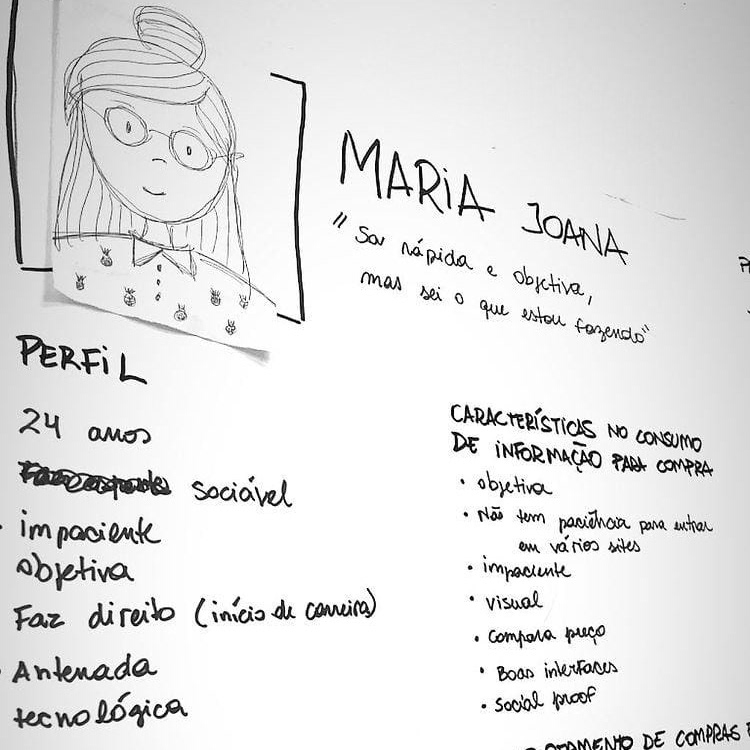 MARIA JOANA
"Sou rápida e objetiva,
mas sei o que estou fazendo"
PERFIL
24 anos
sociável
impaciente
objetiva
Faz direito (início de carreira)
Antenada
tecnológica
CARACTERÍSTICAS NO CONSUMO
DE INFORMAÇÃO PARA COMPRA
• objetiva
• Não tem paciência para entrar
em vários sites
• impaciente
• visual
• compara preço
• Boas interfaces
• Social proof
DE COMPRAS